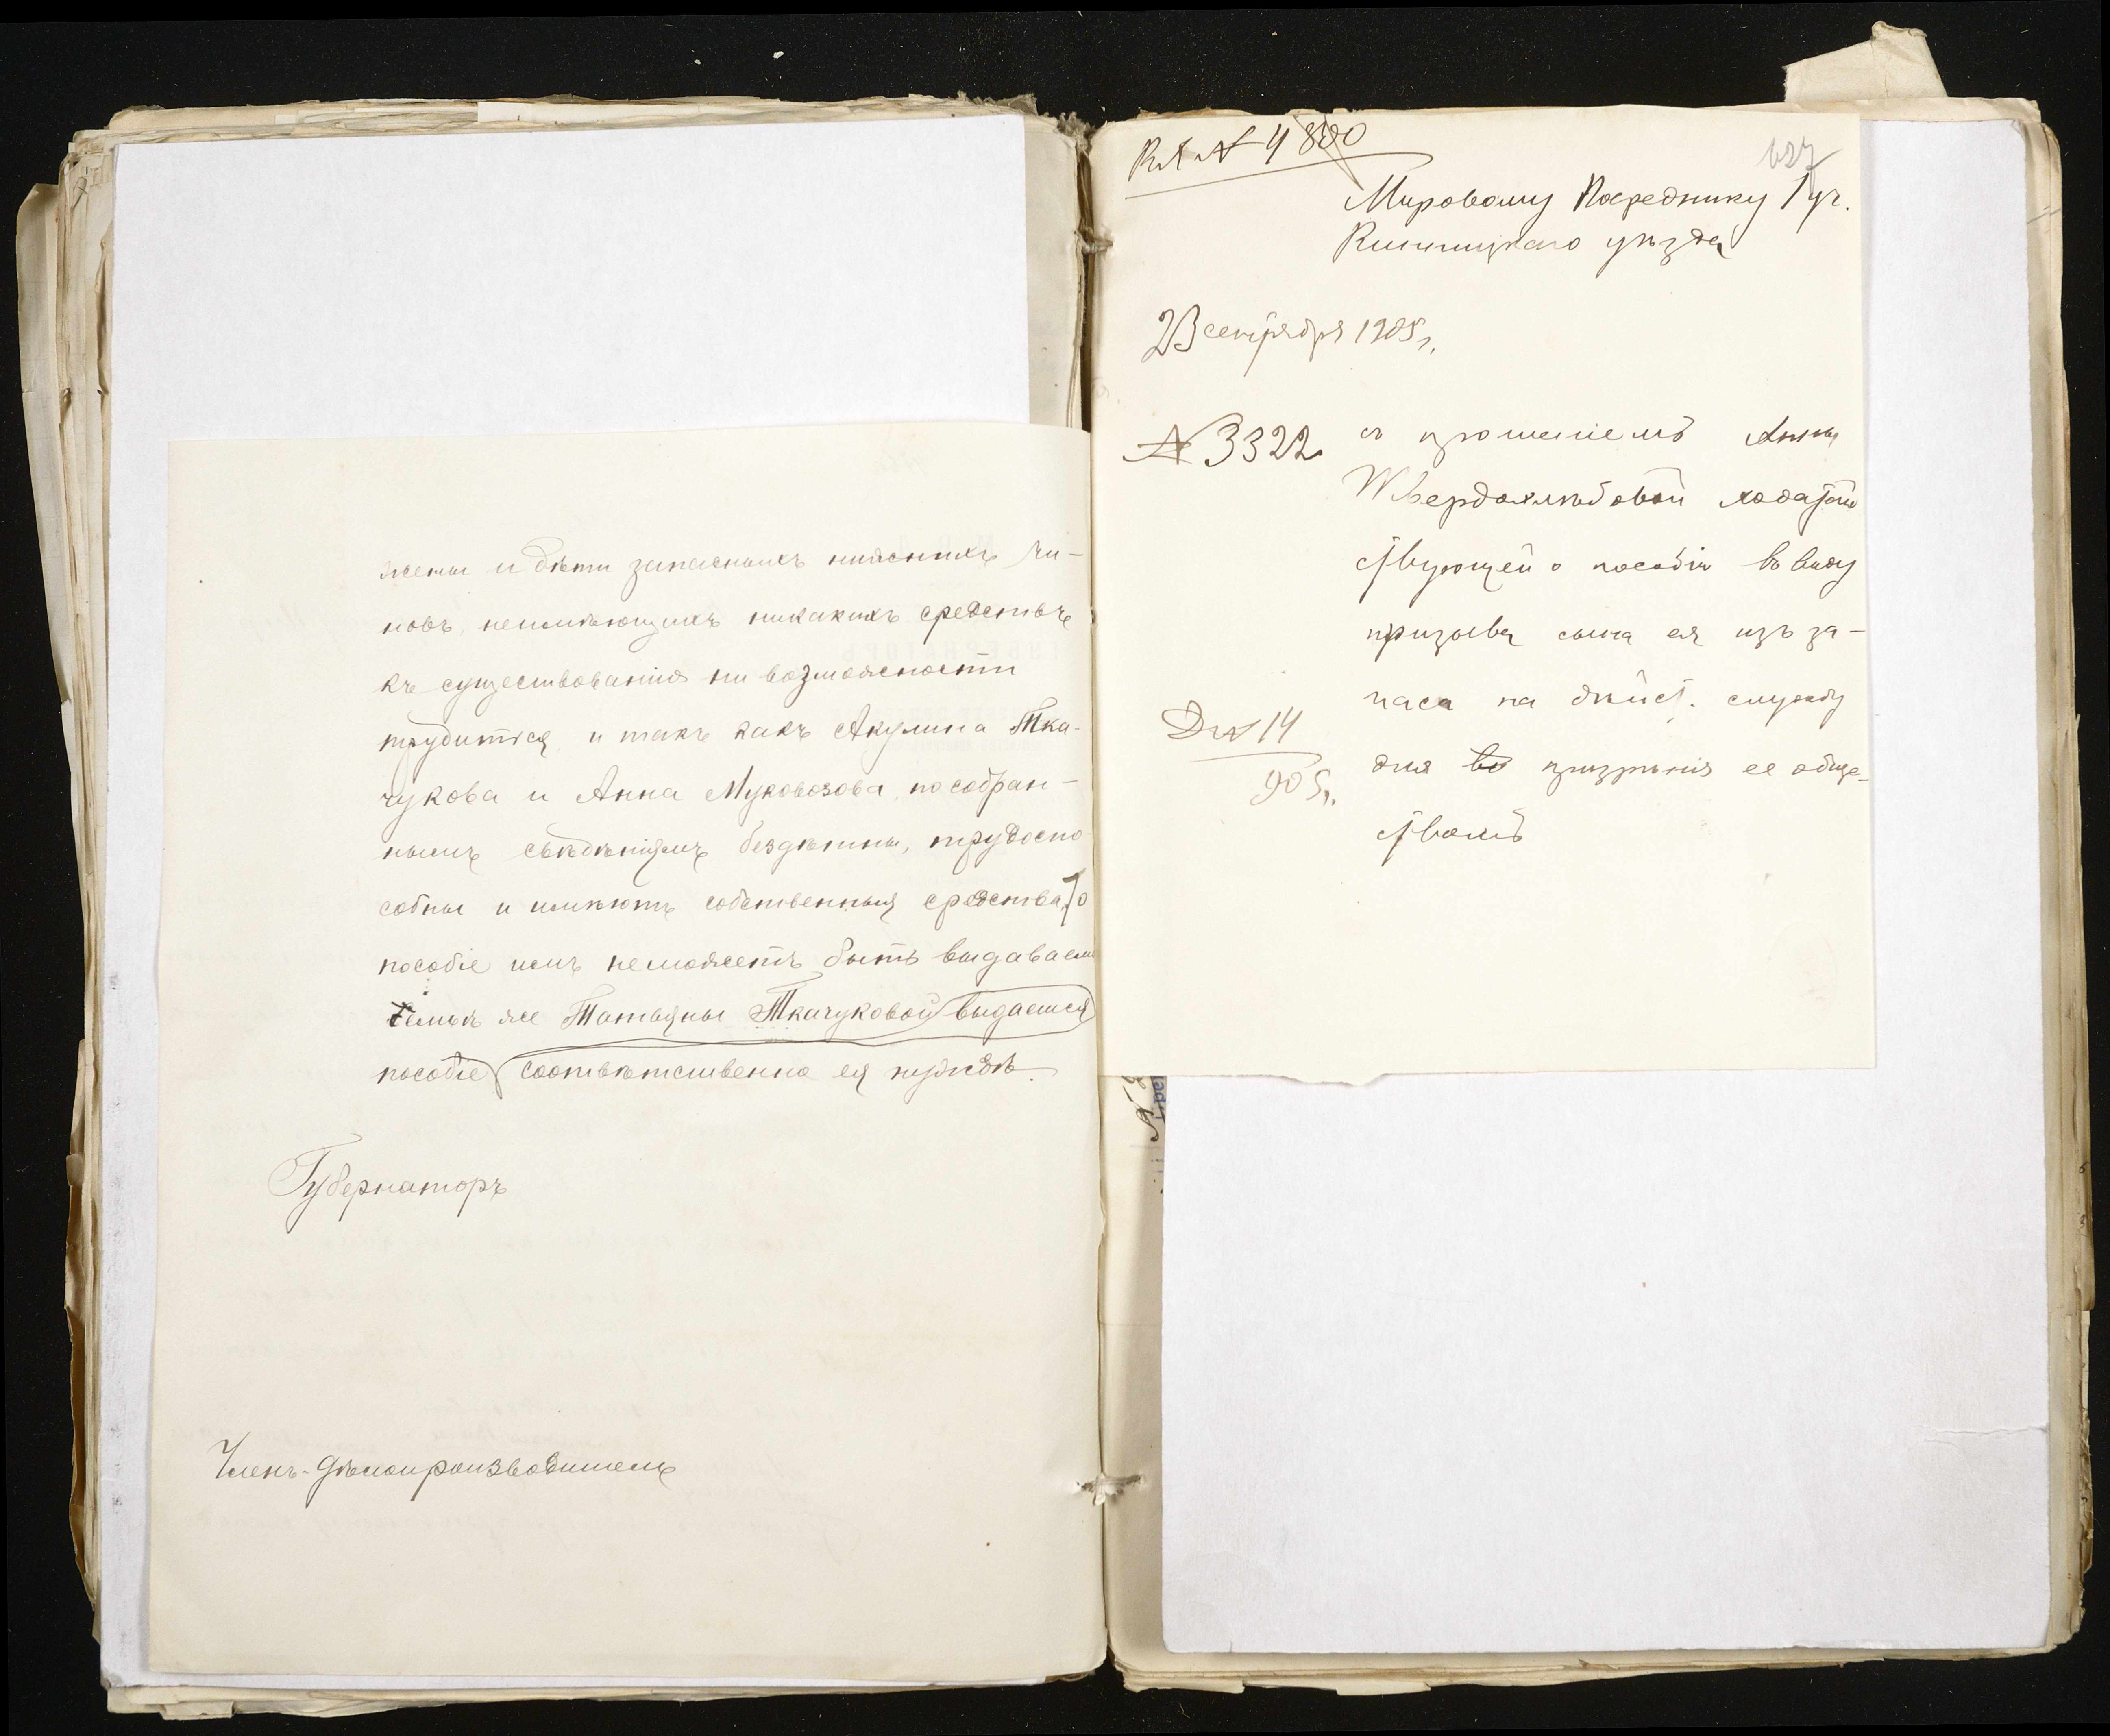 жены и дѣти запасныхъ нижнихъ чи-
новъ, неимѣющихъ никакихъ средствъ
къ существованію ни возможности
трудиться, и такъ какъ Акулина Тка-
чукова и Анна Муковозова, по собран-
нымъ свѣдѣніямъ бездѣтны, трудоспо-
собны и имѣютъ собственныя средства, то
пособіе имъ неможетъ быть выдаваемо
семьѣ же Татьяны Ткачуковой выдается
пособіе соотвѣтственно ея нуждѣ.
Губернаторъ
Членъ-Дѣлопроизводитель
№ 4800
627
Мировому Посреднику 1 уч.
уѣзда
23 сентября 1905 г.
№ 3322
съ прошеніемъ Анны
Твердохлѣбовой ходатай
ствующей о пособіи въ виду
призыва сына ея изъ за-
паса на дѣйст. службу
Д № 14
для призрѣнія ее обще-
905 г.
ствомъ